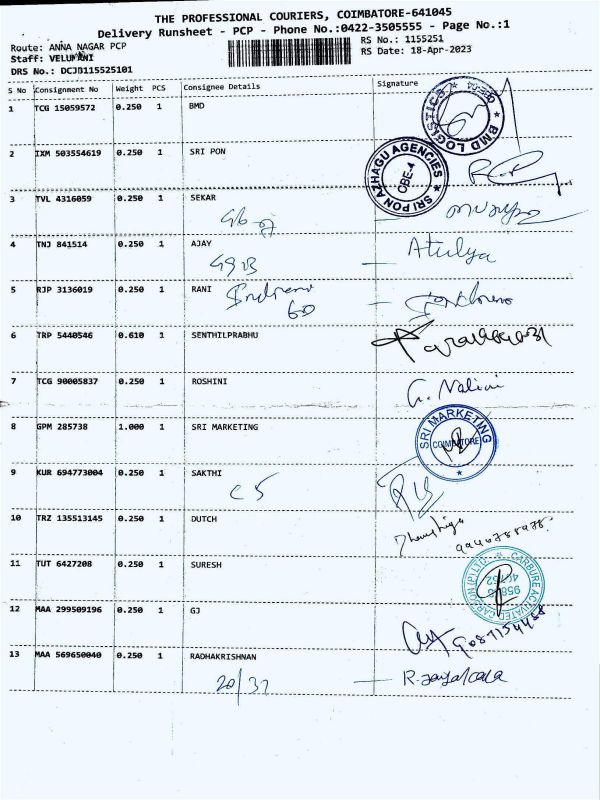 THE PROFESSIONAL COURIERS, COIMBATORE-641045
Delivery Runsheet - PCP - Phone No.:0422-3505555 - Page No.:1
Route: ANNA NAGAR PCP
RS No.: 1155251
Staff: VELUMANI
RS Date: 18-Apr-2023
DRS No.: DCJB115525101
S No Consignment No Weight PCS Consignee Details Signature
1 TCG 15059572 0.250 1 BMD
BMD LOGISTICS
2 IXM 503554619 0.250 1 SRI PON
SRI PON AZHAGU AGENCIES CBE-4
3 TVL 4316059 0.250 1 SEKAR
4 TNJ 841514 0.250 1 AJAY Atulya
49B
5 RJP 3136019 0.250 1 RANI
60
6 TRP 5440546 0.610 1 SENTHILPRABHU
7 TCG 90005837 0.250 1 ROSHINI G. Nalini
8 GPM 285738 1.000 1 SRI MARKETING
SRI MARKETING COIMBATORE
9 KUR 694773004 0.250 1 SAKTHI
C5
10 TRZ 135513145 0.250 1 DUTCH
11 TUT 6427208 0.250 1 SURESH
CARBURE ACTIVATED CARBON (P) LTD
12 MAA 299509196 0.250 1 GJ
13 MAA 569650040 0.250 1 RADHAKRISHNAN